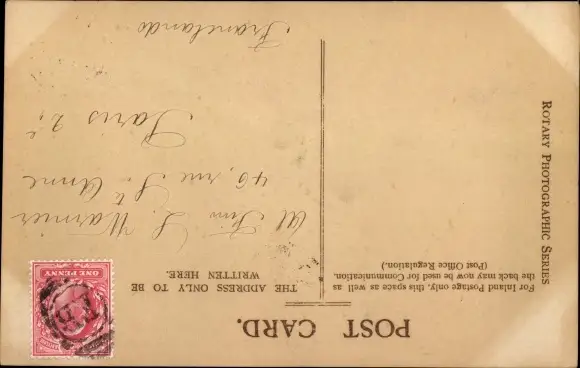 POST CARD.
For Inland Postage only, this space as well as
the back may now be used for Communication.
(Post Office Regulation.)
THE ADDRESS ONLY TO BE
WRITTEN HERE.
L. Warnier
46, rue Ste Anne
Paris 2e
Franclando
ROTARY PHOTOGRAPHIC SERIES
ONE PENNY